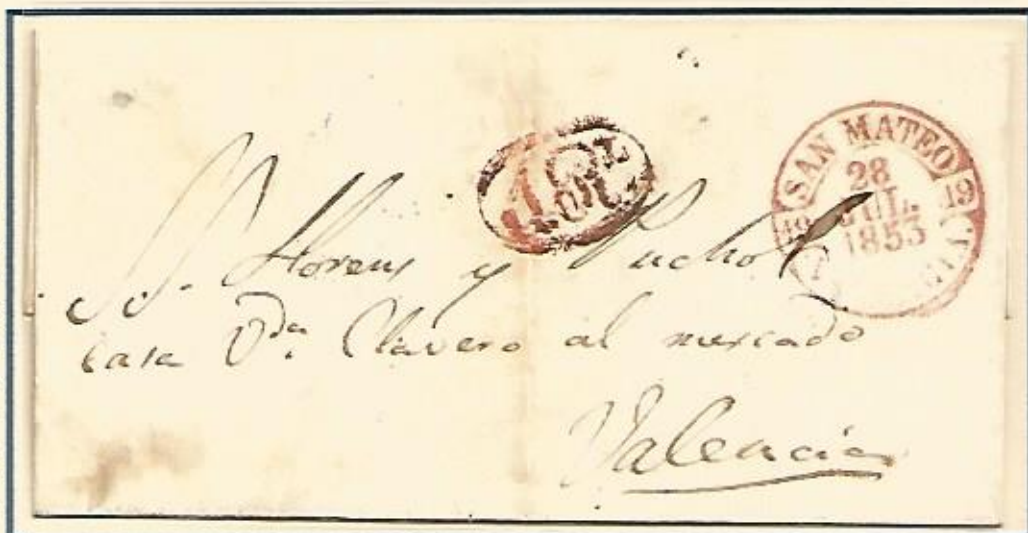 SAN MATEO
19 19
28
JUL.
1853
S. S. Llorens y Puchol
casa V.da Clavero al mercado
Valencia